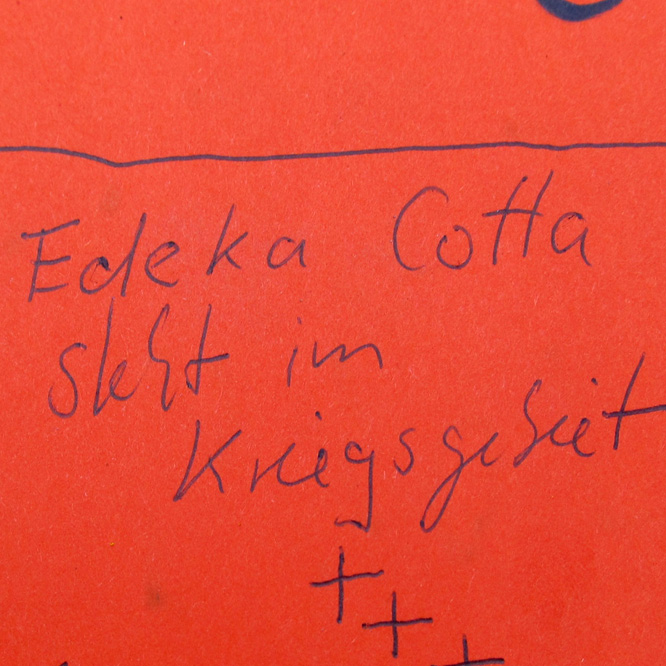 Edeka Cotta
steht im
Kriegsgebiet
+
+
+